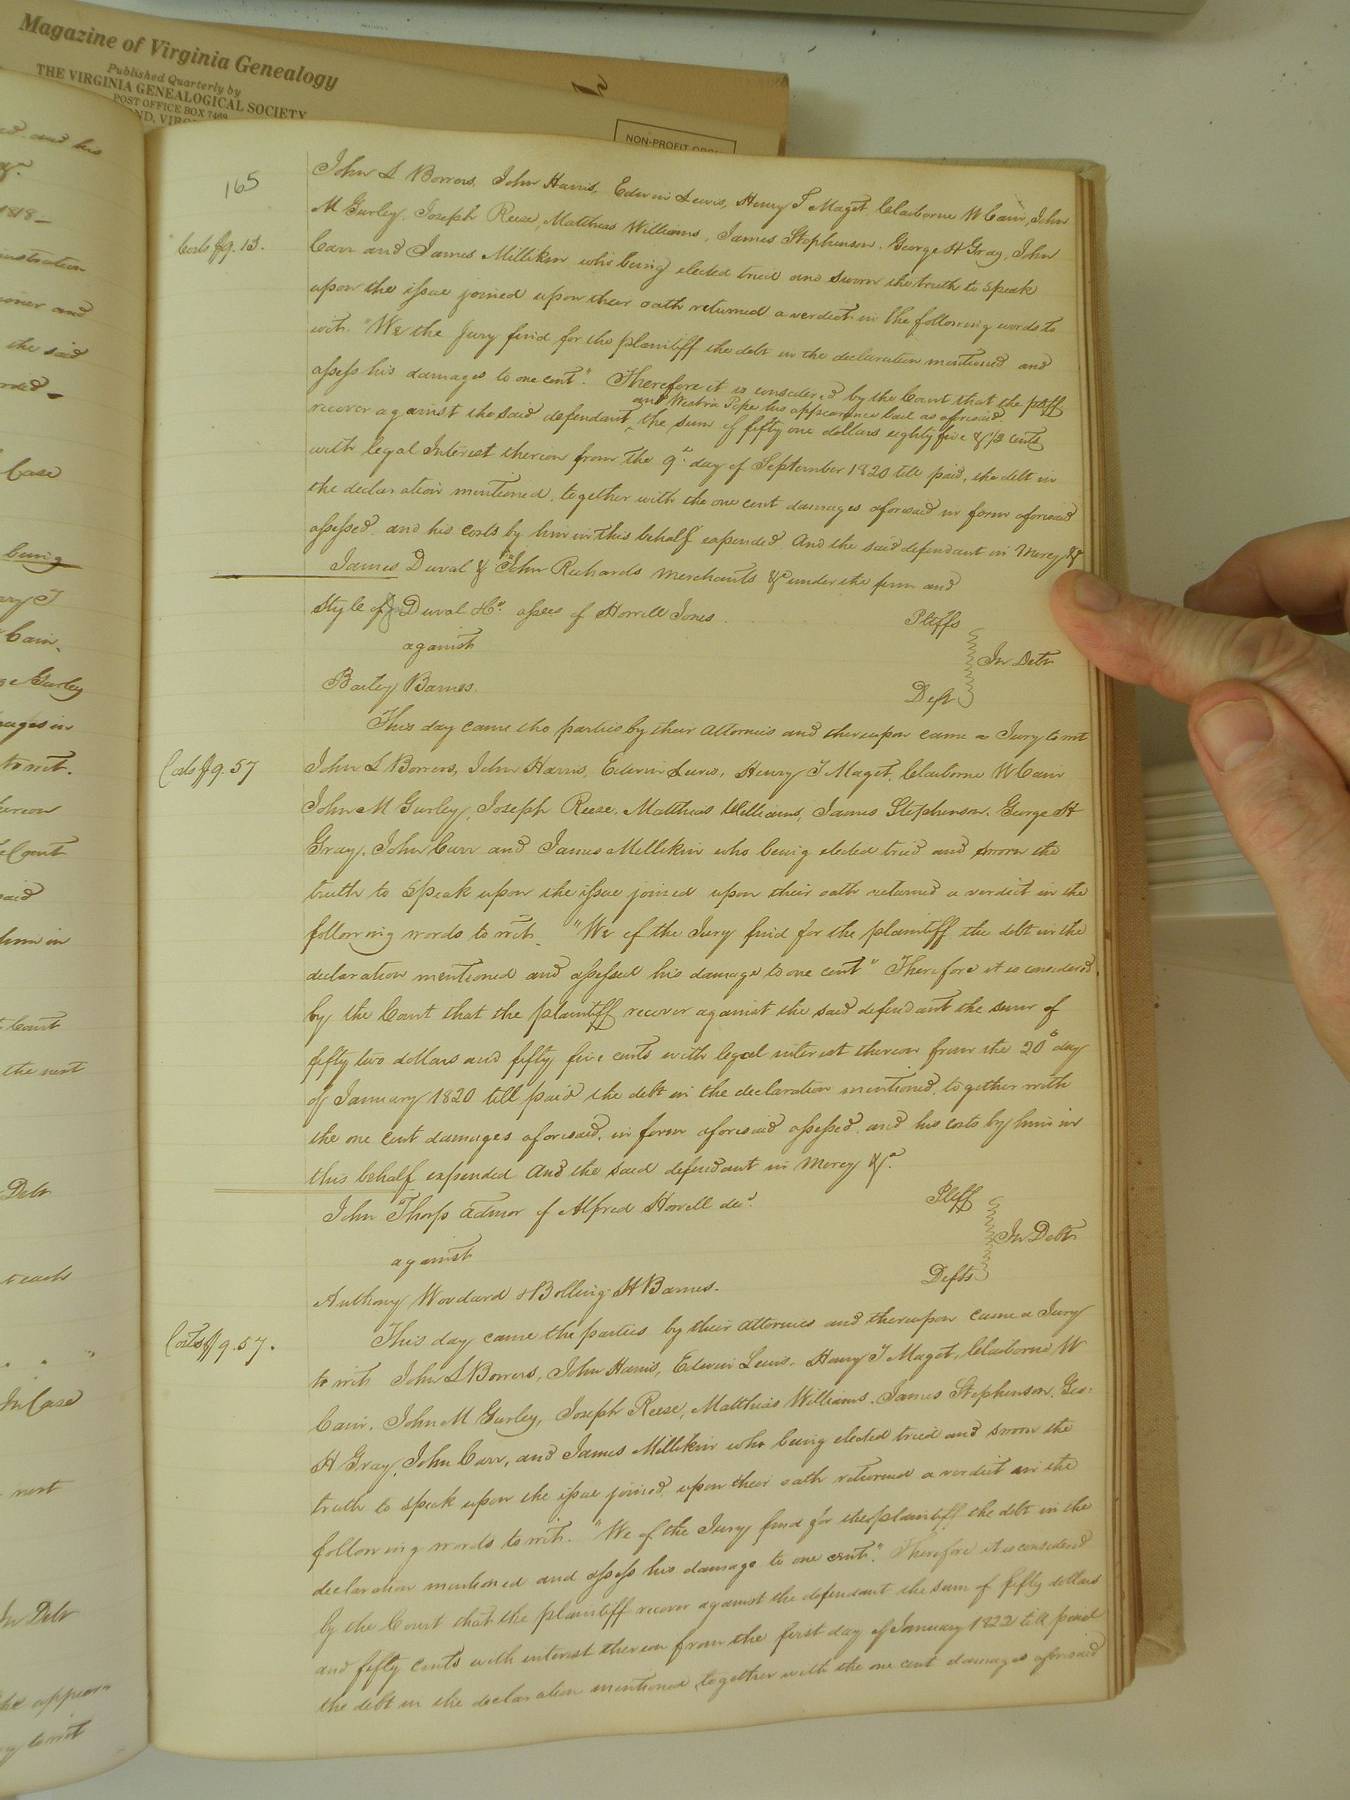 Magazine of Virginia Genealogy
Published Quarterly by
THE VIRGINIA GENEALOGICAL SOCIETY
POST OFFICE BOX 7469
NON-PROFIT ORG
165
John L Borrors, John Harris, Edwin Lewis, Henry T Maget, Claiborne W Cain, John
M Gurley, Joseph Reese, Matthias Williams, James Stephenson, George H Gray, John
Costs $9.13.
Carr and James Millikin who being elected tried and sworn the truth to speak
upon the issue joined upon their oath returned a verdict in the following words to
wit. "We the Jury find for the plaintiff the debt in the declaration mentioned and
assess his damages to one cent." Therefore it is considered by the Court that the pltff
and Westria Pope his appearance bail as aforesaid
recover against the said defendant, the sum of fifty one dollars eighty five & 1/2 cents
with legal Interest thereon from the 9th day of September 1820 till paid, the debt in
the declaration mentioned, together with the one cent damages aforesaid in form aforesaid
assessed, and his costs by him in this behalf expended. And the said defendant in Mercy &c
James Duval & John Richards merchants &c under the firm and
style of J Duval & Co. assee of Horrell Jones Pltffs
against In Debt
Bailey Barnes. Deft
This day came the parties by their Attornies and thereupon came a Jury to wit
Costs $9.57
John L Borrors, John Harris, Edwin Lewis, Henry T Maget, Claiborne W Cain
John M Gurley, Joseph Reese, Matthias Williams, James Stephenson, George H
Gray, John Carr and James Millikin who being elected tried and sworn the
truth to speak upon the issue joined upon their oath returned a verdict in the
following words to wit. "We of the Jury find for the plaintiff the debt in the
declaration mentioned and assessed his damage to one cent" Therefore it is considered
by the Court that the plaintiff recover against the said defendant the sum of
fifty two dollars and fifty five cents with legal interest thereon from the 20th day
of January 1820 till paid the debt in the declaration mentioned, together with
the one cent damages aforesaid, in form aforesaid assessed, and his costs by him in
this behalf expended And the said defendant in Mercy &c.
John Thorp Admor of Alfred Horrell decd. Pltff
against In Debt
Anthony Woodard & Bolling H Barnes. Defts
This day came the parties by their Attornies and thereupon came a Jury
Costs $9.57.
to wit John L Borrors, John Harris, Edwin Lewis, Henry T Maget, Claiborne W
Cain, John M Gurley, Joseph Reese, Matthias Williams, James Stephenson, Geo:
H Gray, John Carr, and James Millikin who being elected tried and sworn the
truth to speak upon the issue joined, upon their oath returned a verdict in the
following words to wit. "We of the Jury find for the plaintiff the debt in the
declaration mentioned and assess his damage to one cent." Therefore it is considered
by the Court that the plaintiff recover against the defendant the sum of fifty dollars
and fifty cents with interest thereon from the first day of January 1822 till paid
the debt in the declaration mentioned, together with the one cent damages aforesaid